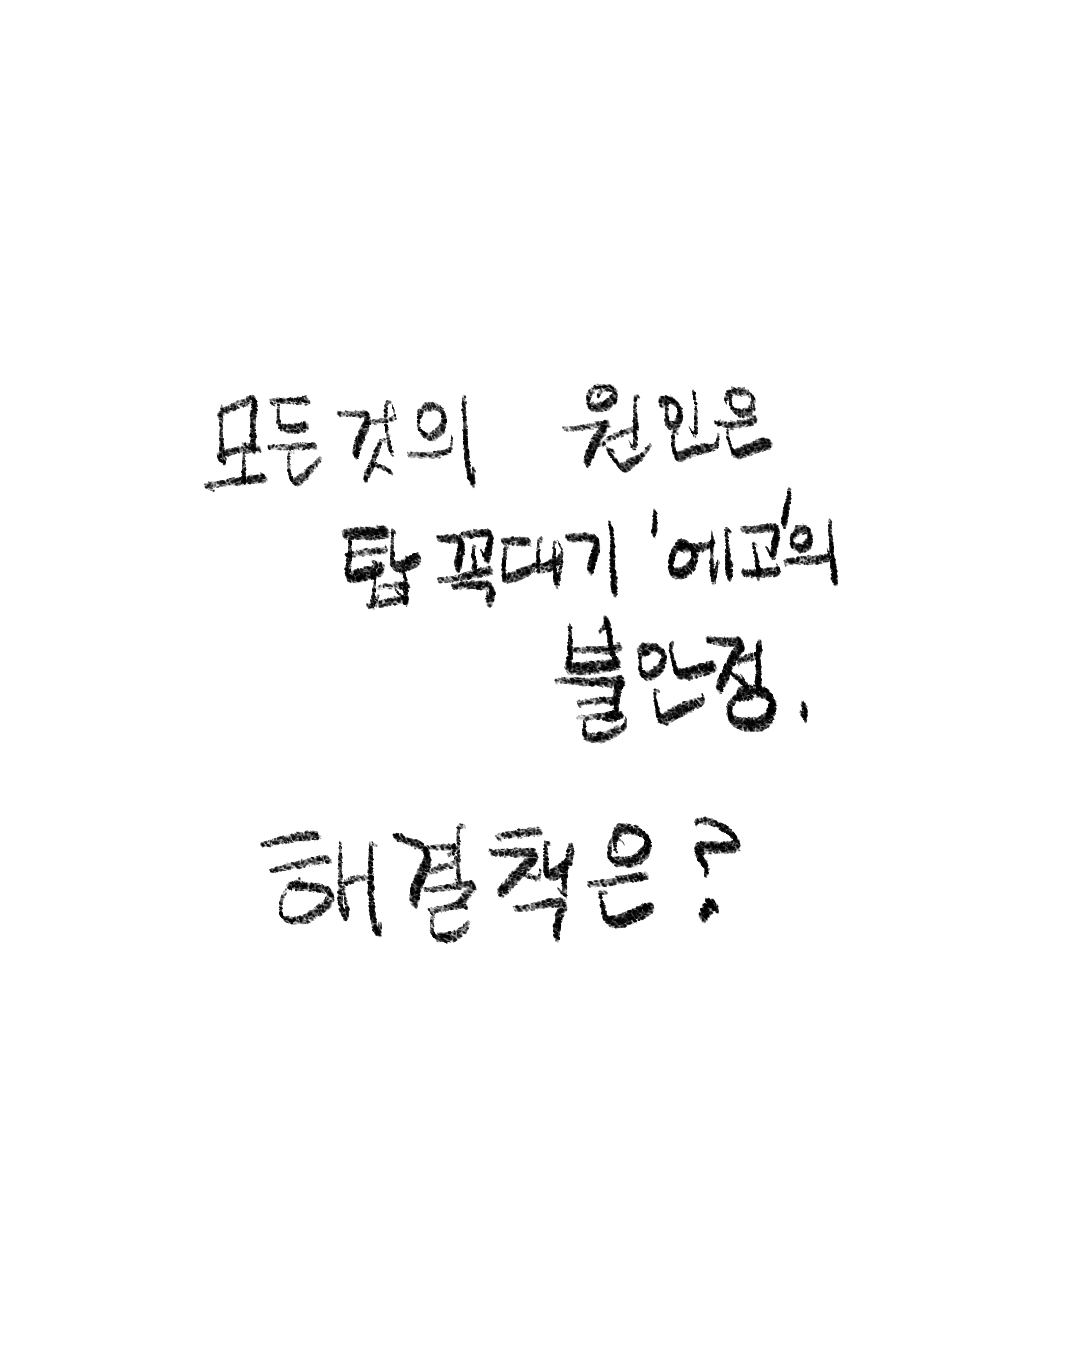 모든것의 원인은
탑꼭대기 '에고'의
불안정.
해결책은?